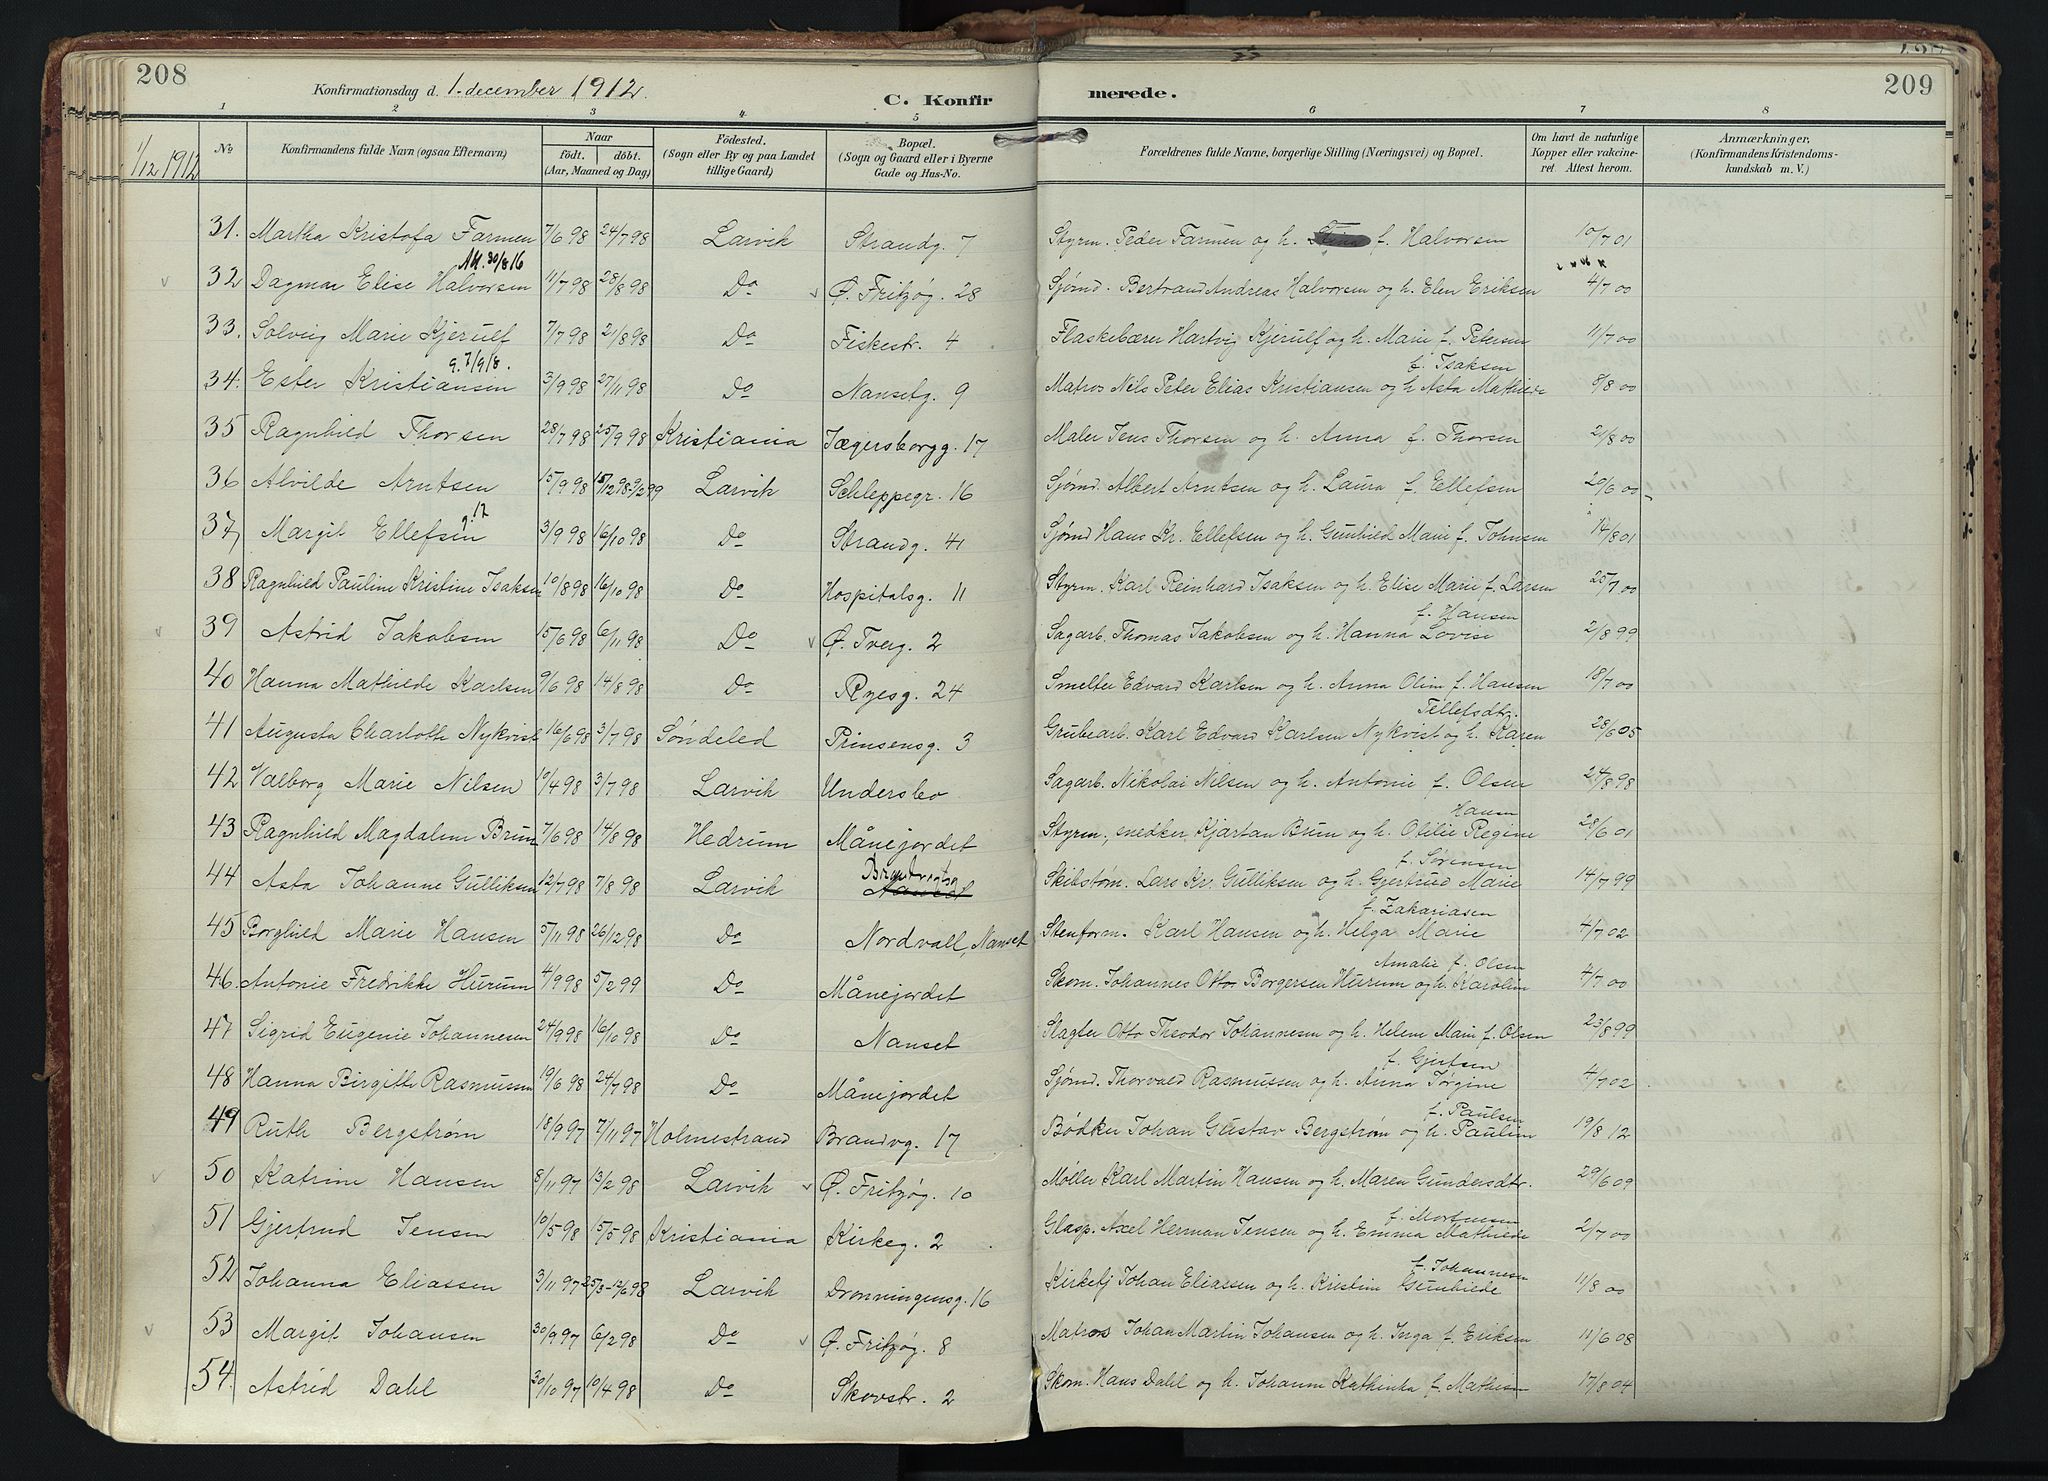 208
Konfirmationsdag d. 1. december 1912.
C. Konfirmerede.
209
1/12 1912
1 2 3 4 5 6 7 8
No
Konfirmandens fulde Navn (ogsaa Efternavn)
Naar født. døbt. (Aar, Maaned og Dag)
Födested. (Sogn eller By og paa Landet tillige Gaard)
Bopæl. (Sogn og Gaard eller i Byerne Gade og Hus-No.
Forældrenes fulde Navne, borgerlige Stilling (Næringsvei) og Bopæl.
Om havt de naturlige Kopper eller vakcineret. Attest herom.
Anmærkninger, (Konfirmandens Kristendomskundskab m. V.)
31. Martha Kristofa Farmen 7/6 98 24/7 98 Larvik Strandg. 7 Styrm. Peder Farmen og h. f. Halvorsen 10/7 01
Att. 30/8 16
32 Dagmar Elise Halvorsen 11/7 98 28/8 98 Do Ø. Fritzøg. 28 Sjømd. Bertrand Andreas Halvorsen og h. Elen Eriksen 4/7 00
33. Solveig Marie Kjerulf 7/7 98 21/8 98 Do Fiskestr. 4 Flaskebærer Hartvig Kjerulf og h. Marie f. Petersen 11/7 00
g. 7/9 18. f. Isaksen
34. Ester Kristiansen 3/9 98 27/11 98 Do Nansetg. 9 Matros Nils Peter Elias Kristiansen og h. Asta Mathilde 8/8 00
35 Ragnhild Thorsen 28/7 98 25/9 98 Kristiania Jægersborgg. 17 Maler Jens Thorsen og h. Anna f. Thorsen 21/8 00
36 Alvilde Arntsen 15/9 98 Larvik Schleppegr. 16 Sjømd. Albert Arntsen og h. Laura f. Ellefsen 20/6 00
g. 12
37 Margit Ellefsen 3/9 98 16/10 98 Do Strandg. 41 Sjømd Hans Kr. Ellefsen og h. Gunhild Marie f. Johnsen 14/8 01
38 Ragnhild Pauline Kristine Isaksen 10/8 98 16/10 98 Do Hospitalsg. 11 Styrm. Karl Reinhard Isaksen og h. Elise Marie f. Larsen 25/7 00
f. Hansen
39 Astrid Jakobsen 15/6 98 6/11 98 Do Ø. Tverg. 2 Sagarb. Thomas Jakobsen og h. Hanna Lovise 2/8 99
40 Hanna Mathilde Karlsen 9/6 98 14/8 98 Do Ryesg. 24 Smelter Edvard Karlsen og h. Anna Oline f. Hansen 18/7 00
Tellefsdtr.
41 Augusta Charlotte Nykvist 16/6 98 3/7 98 Søndeled Prinsensg. 3 Grubearb. Karl Edvard Karlsen Nykvist og h. Karen 28/6 05
42 Valborg Marie Nilsen 10/4 98 3/7 98 Larvik Undersbo Sagarb. Nikolai Nilsen og h. Antonie f. Olsen 24/8 98
Hansen
43 Ragnhild Magdalene Brun 7/6 98 14/8 98 Hedrum Månejordet Styrm, snedker Kjartan Brun og h. Otilie Regine 28/6 01
f. Sørensen
44 Asta Johanne Gulliksen 12/7 98 7/8 98 Larvik Skibstøm. Lars Kr. Gulliksen og h. Gjertrud Marie 14/7 99
f. Zakariasen
45 Borghild Marie Hansen 5/11 98 26/12 98 Do Nordvall, Nanset Stenform. Karl Hansen og h. Helga Marie 4/7 02
Amalie f. Olsen
46. Antonie Fredrikke Hurum 4/9 98 5/2 99 Do Månejordet Skom. Johannes Otto Borgersen Hurum og h. Karoline 4/7 00
47 Sigrid Eugenie Johannesen 24/9 98 16/10 98 Do Nanset Slagter Otto Theodor Johannesen og h. Helene Marie f. Olsen 23/8 99
f. Gjertsen
48 Hanna Birgitte Rasmussen 19/6 98 24/7 98 Do Månejordet Sjømd. Thorvald Rasmussen og h. Anna Jørgine 4/7 02
f. Paulsen
49 Ruth Bergstrøm 18/9 97 7/11 97 Holmestrand Brandvg. 17 Bødker Johan Gustav Bergstrøm og h. Pauline 19/8 12
50 Katrine Hansen 8/11 97 13/2 98 Larvik Ø. Fritzøg. 10 Møller Karl Martin Hansen og h. Maren Gundersdtr. 29/6 09
f. Mortensen
51 Gjertrud Jensen 10/5 98 15/5 98 Kristiania Kirkeg. 2 Glasp. Axel Herman Jensen og h. Emma Mathilde 2/7 00
f. Johannesen
52 Johanna Eliassen 3/11 97 25/3-12/6 98 Larvik Dronningensg. 16 Kirketj Johan Eliassen og h. Kristine Gunhilde 11/8 00
53 Margit Johansen 30/9 97 6/2 98 Do Ø. Fritzøg. 8 Matros Johan Martin Johansen og h. Inga f. Eriksen 11/6 08
54. Astrid Dahl 30/10 97 10/4 98 Do Skovstr. 2 Skom. Hans Dahl og h. Johanne Kathinka f. Mathisen 17/8 04